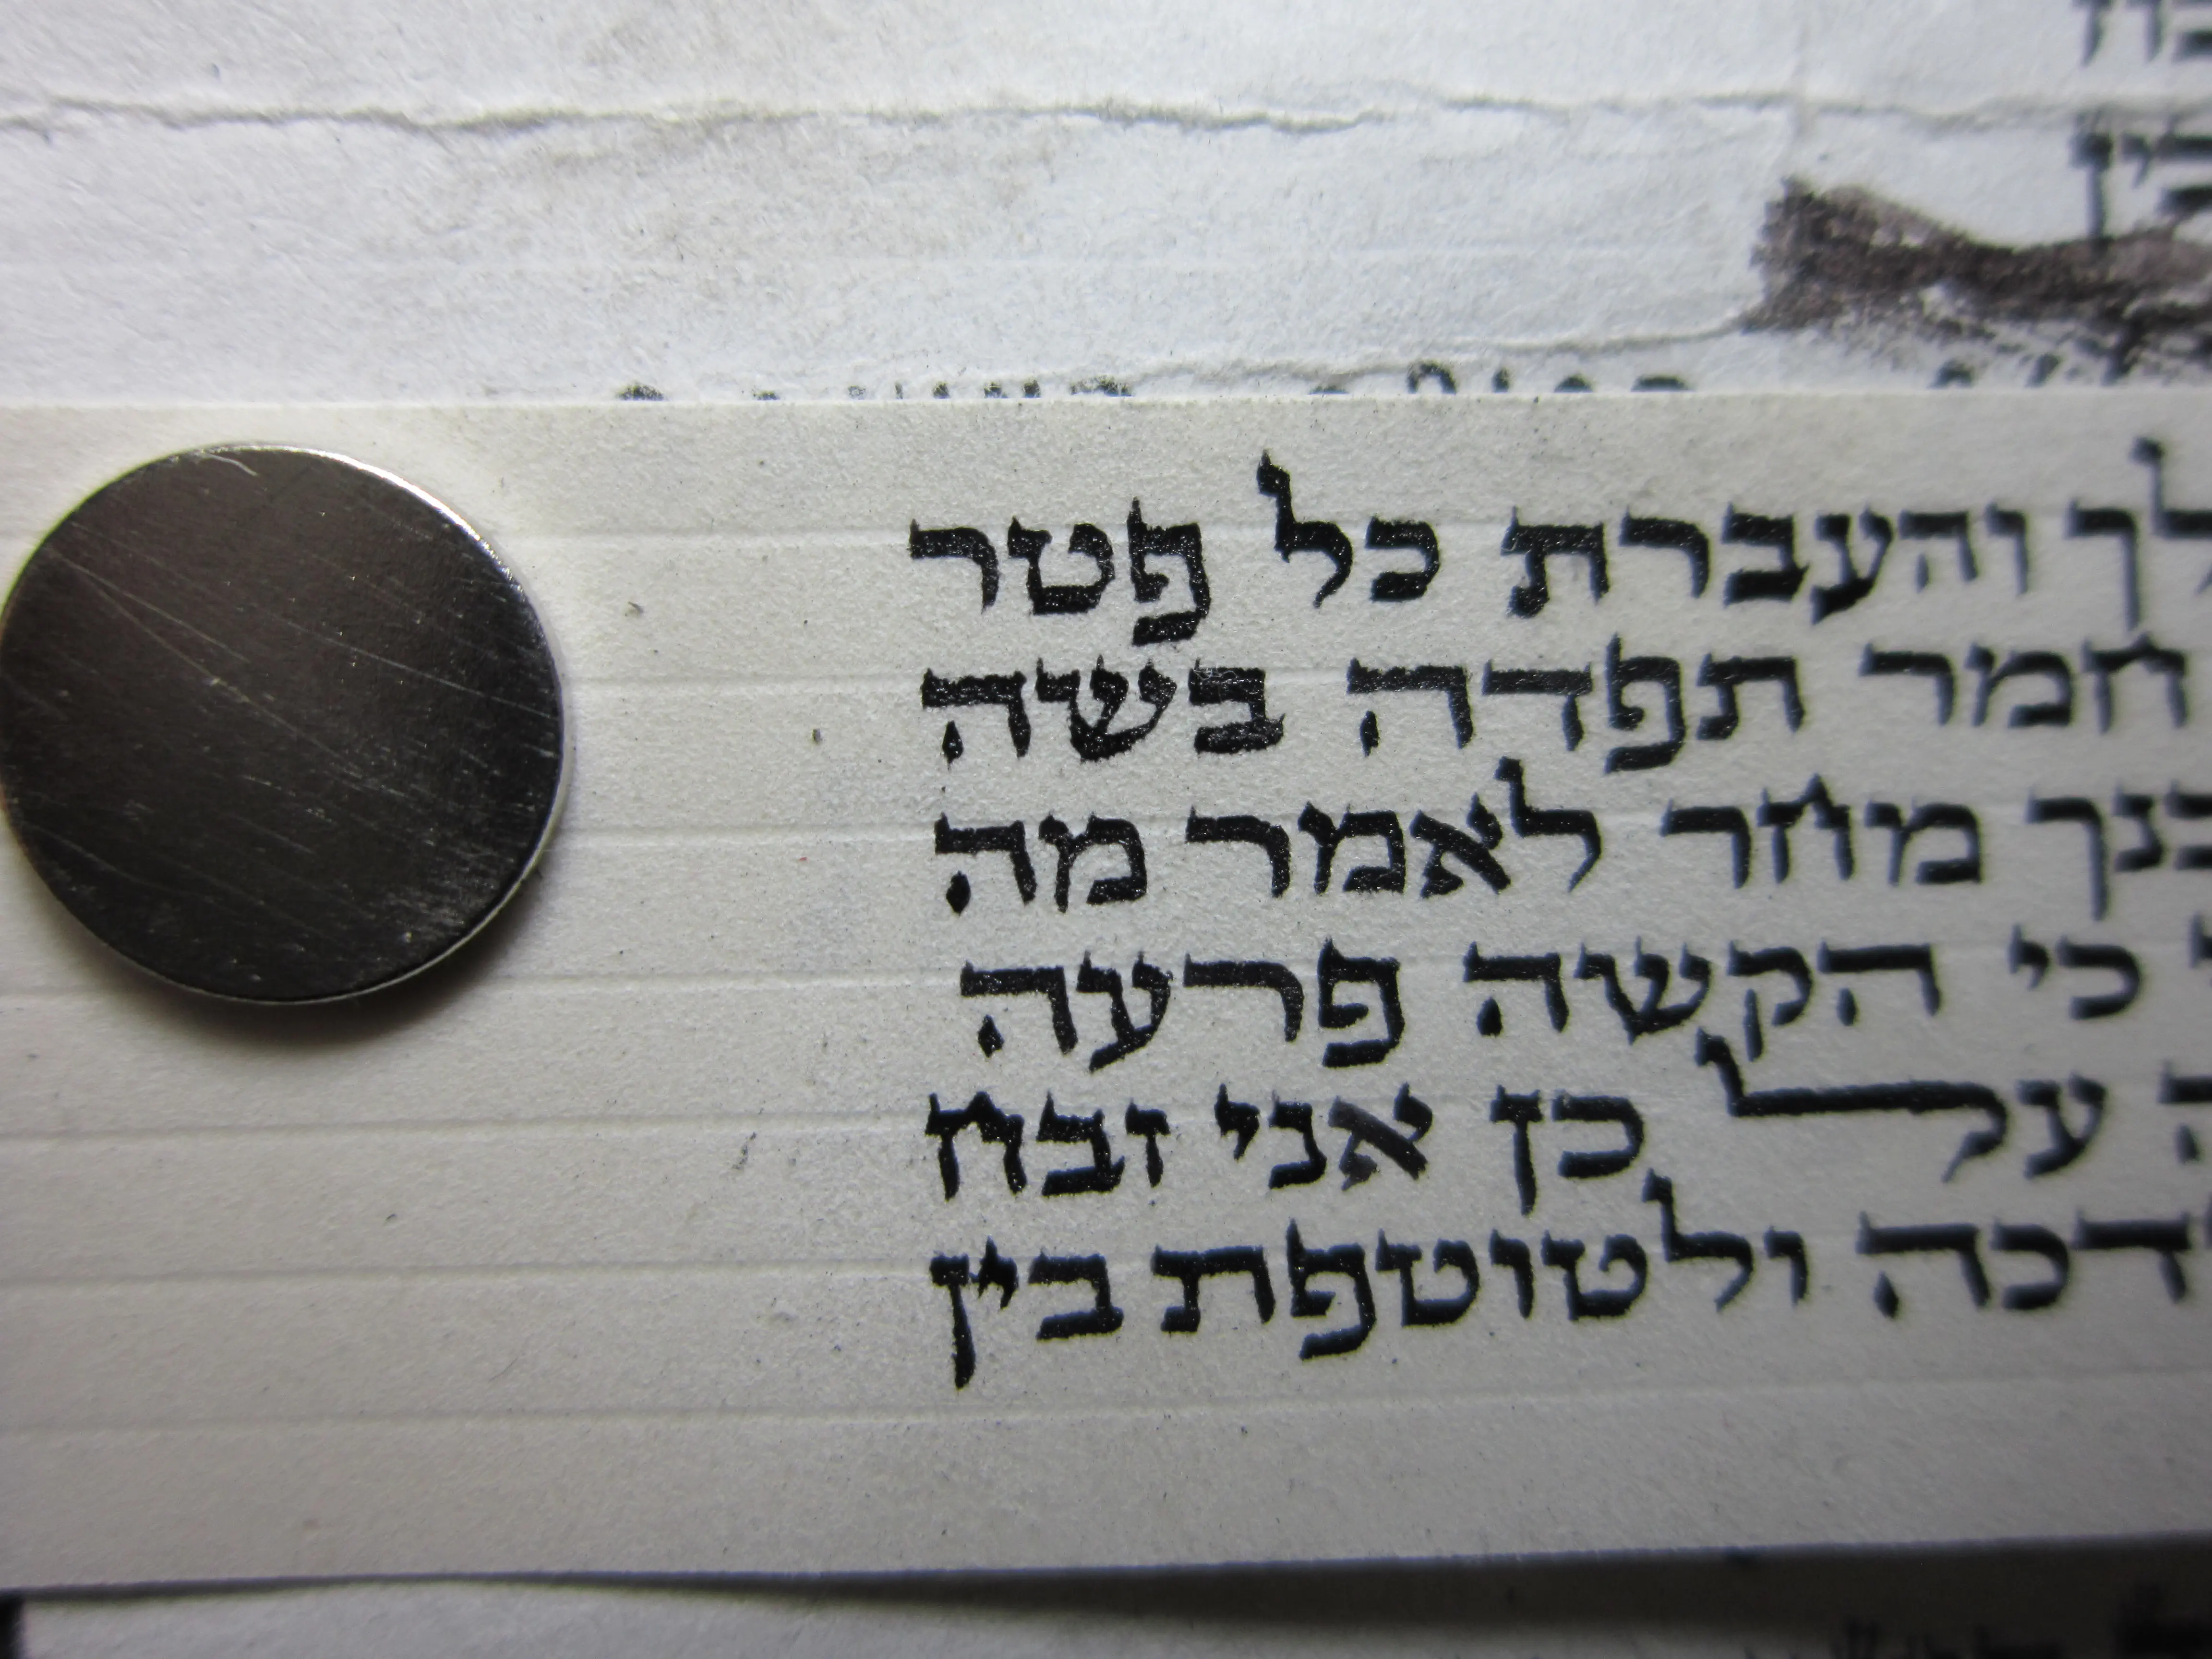 לך והעברת כל פטר
חמר תפדה בשה
בנך מחר לאמר מה
כי הקשה פרעה
על כן אני זבח
ולטוטפת בין